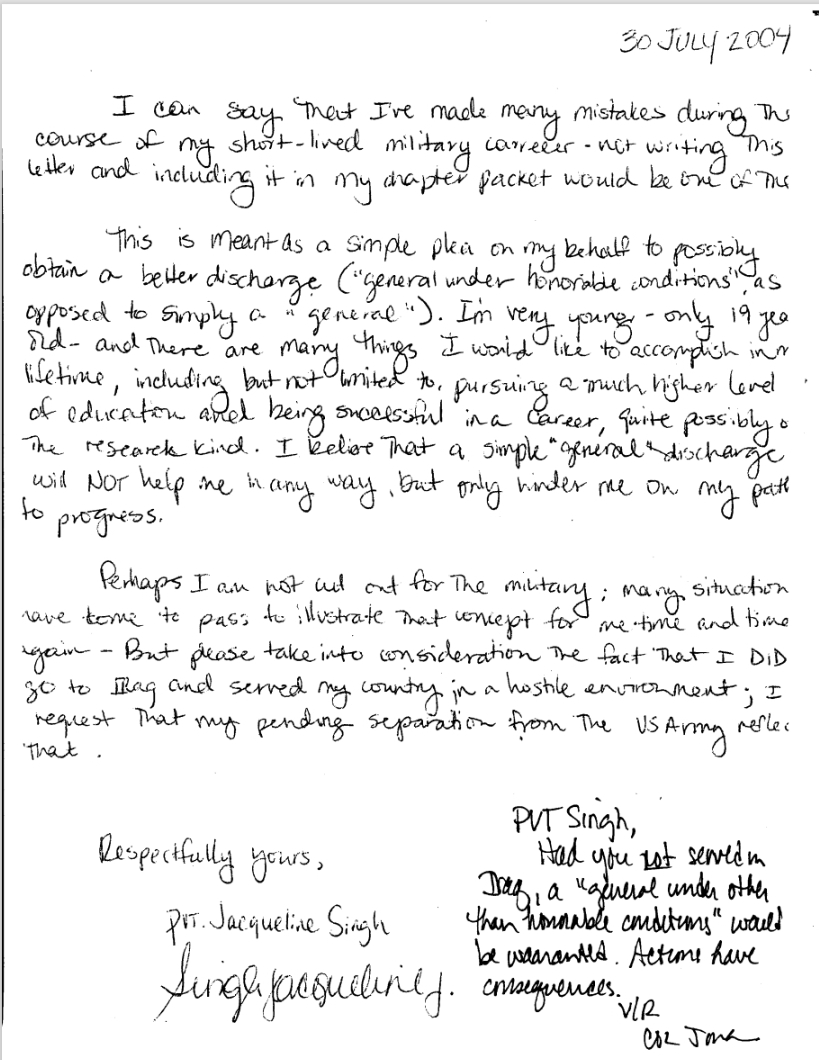 30 JULY 2004
I can say that I've made many mistakes during the
course of my short-lived military carreer - not writing this
letter and including it in my chapter packet would be one of the
This is meant as a simple plea on my behalf to possibly
obtain a better discharge ("general under honorable conditions", as
opposed to simply a "general"). I'm very young - only 19 yea
old - and there are many things I would like to accomplish in
lifetime, including but not limited to, pursuing a much higher level
of education and being successful in a career, quite possibly o
the research kind. I believe that a simple "general" discharge
will NOT help me in any way, but only hinder me on my path
to progress.
Perhaps I am not cut out for the military; many situation
have come to pass to illustrate that concept for me time and time
again - But please take into consideration the fact that I DID
go to Iraq and served my country in a hostile environment; I
request that my pending separation from the US Army reflec
that.
Respectfully yours,
PVT. Jacqueline Singh
Singh, Jacqueline J.
PVT Singh,
Had you not served in
Iraq, a "general under other
than honorable conditions" would
be warranted. Actions have
consequences.
V/R